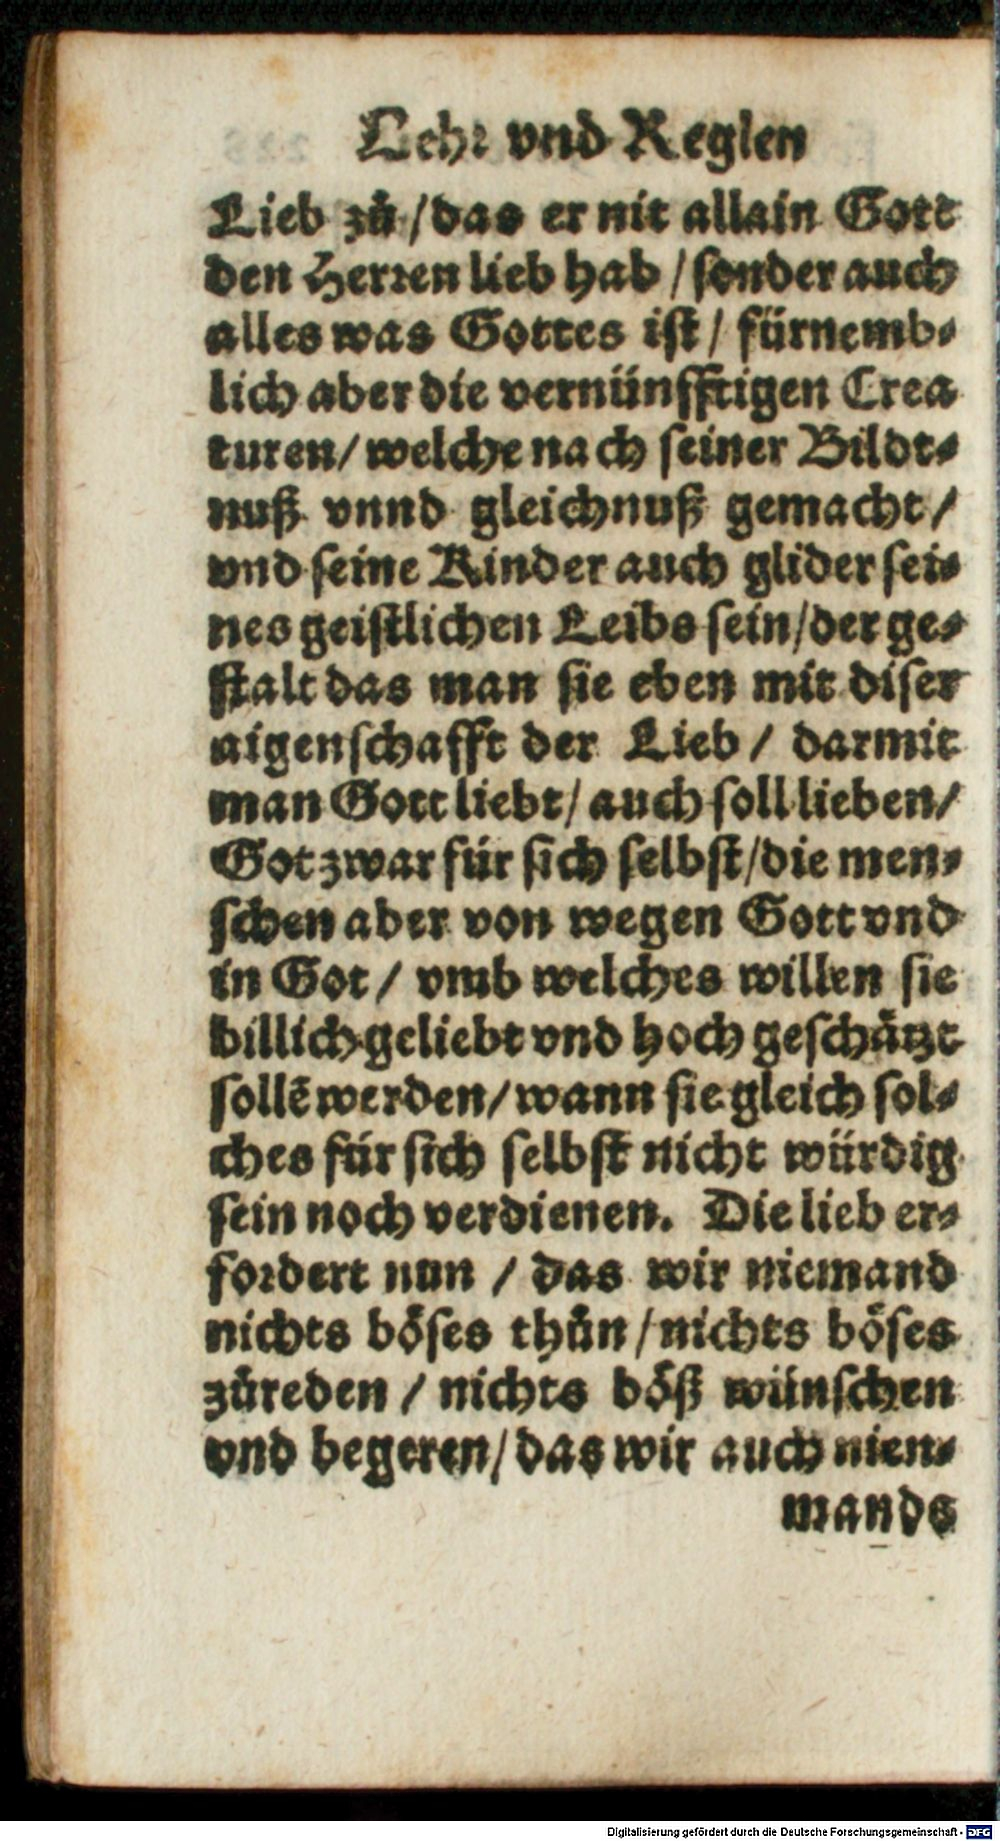 Lehr vnd Reglen
Lieb zů / das er nit allain Gott
den Herren lieb hab / sonder auch
alles was Gottes ist / fürnemb-
lich aber die vernünfftigen Crea
turen / welche nach seiner Bildt-
nuß vnnd gleichnuß gemacht /
vnd seine Kinder auch glider sei-
nes geistlichen Leibs sein / der ge-
stalt das man sie eben mit diser
aigenschafft der Lieb / darmit
man Gott liebt / auch soll lieben /
Got zwar für sich selbst / die men-
schen aber von wegen Gott vnd
in Got / vmb welches willen sie
billich geliebt vnd hoch geschätzt
sollē werden / wann sie gleich sol-
ches für sich selbst nicht würdig
sein noch verdienen. Die lieb er-
fordert nun / das wir niemand
nichts böses thůn / nichts böses
zůreden / nichts böß wünschen
vnd begeren / das wir auch nien-
mands
Digitalisierung gefördert durch die Deutsche Forschungsgemeinschaft - DFG